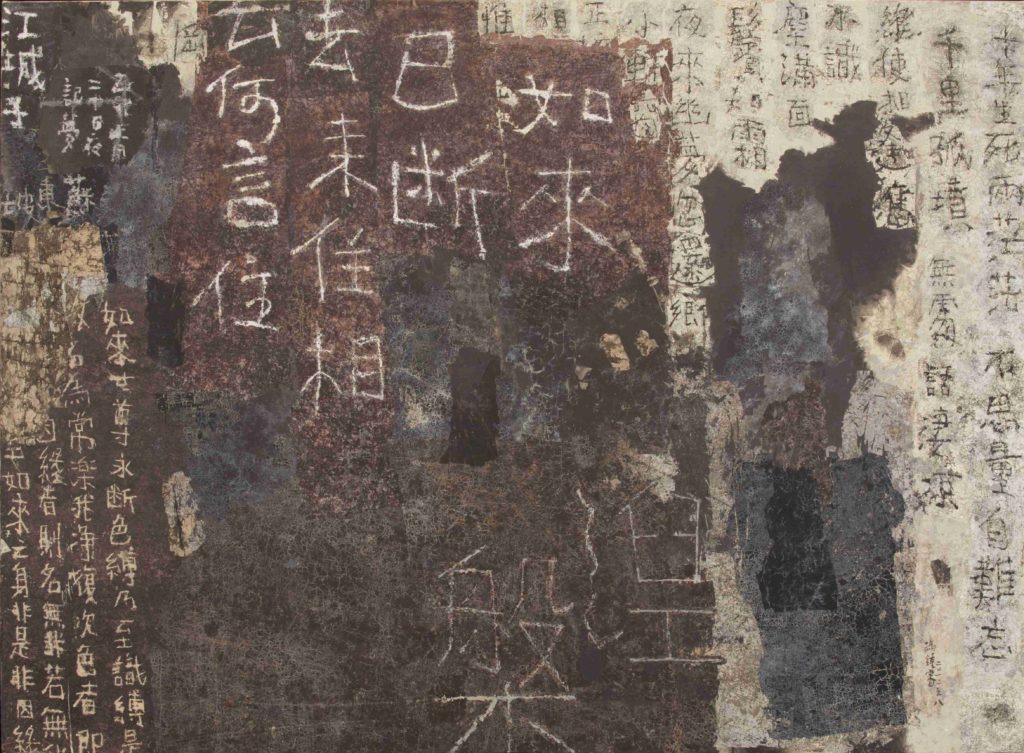 十年生死兩茫茫 不思量自難忘
千里孤墳 無處話淒涼
縱使相逢應
不識
塵滿面
鬢如霜
夜來幽夢忽還鄉
小軒窗
正
相
惟
如來
已斷
去來住相
云何言住
岡
江城子
二十日夜
記夢
蘇
東坡
涅
槃
如來世尊永斷色縛乃至識縛是
故名為常樂我淨復次色者即
因緣者則名無我若無
如來之身非是非因緣